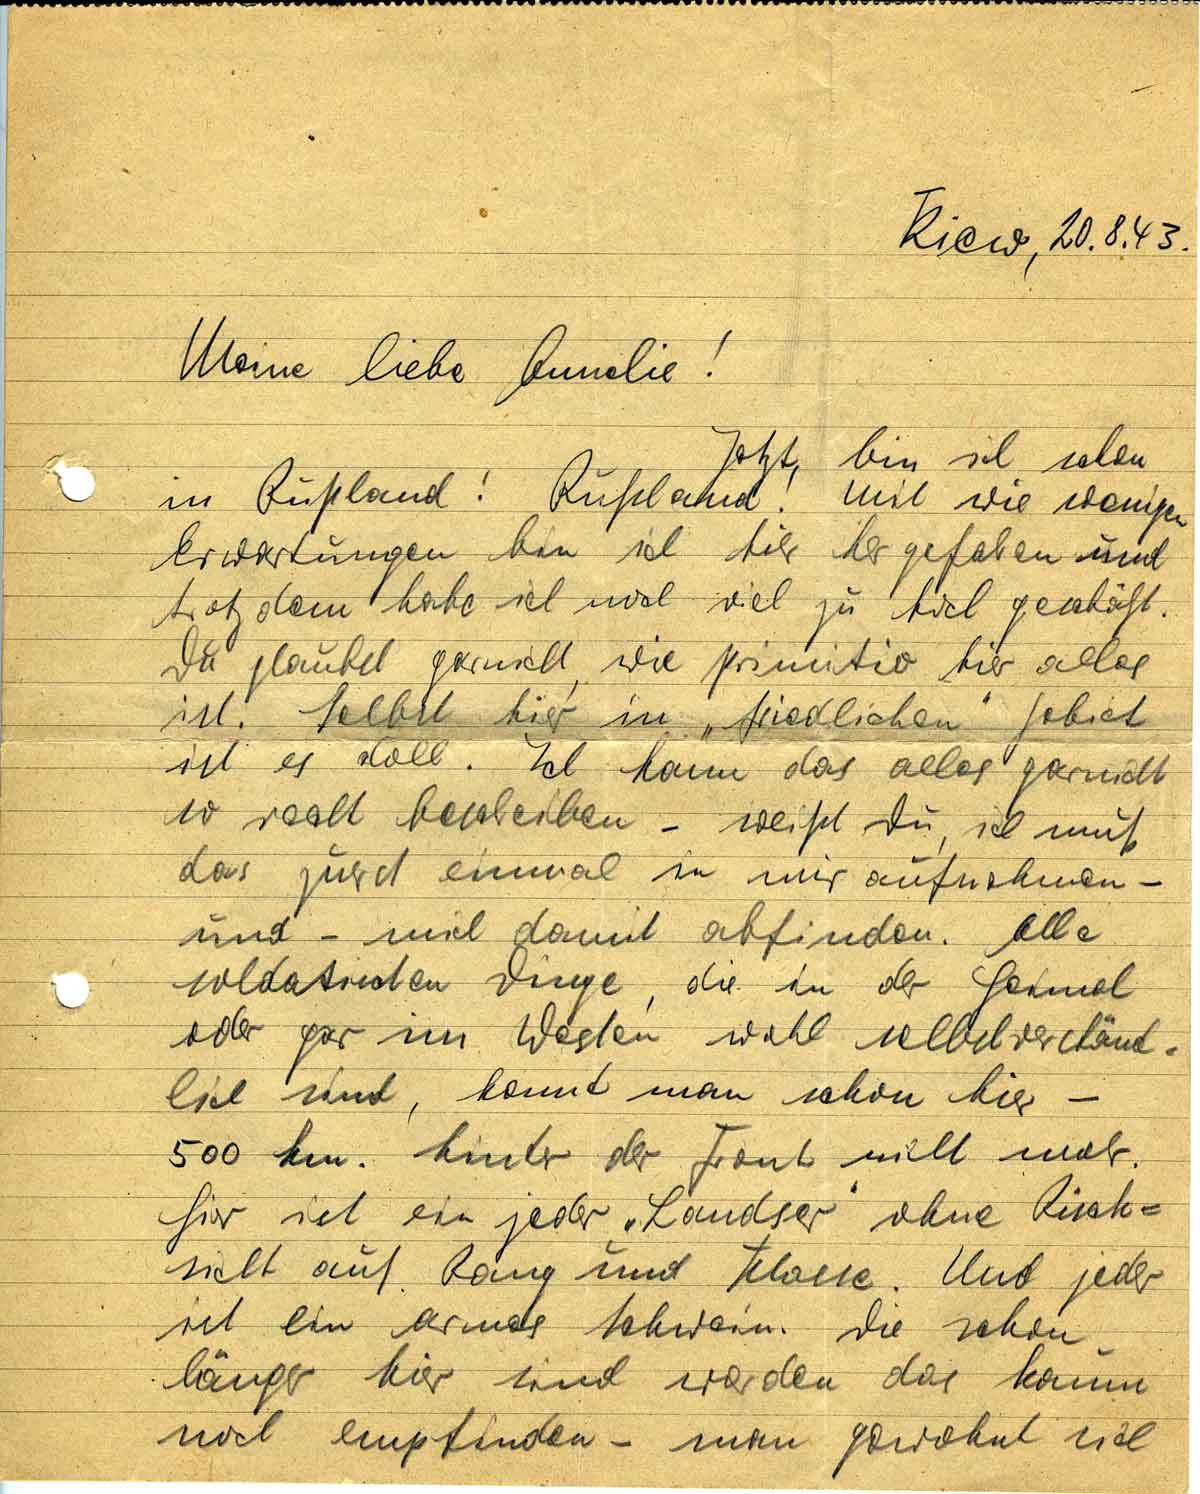 Kiew, 20.8.43.
Meine liebe Annelie!
Jetzt, bin ich schon
in Rußland! Rußland! Mit wie wenigen
Erwartungen bin ich hier hergefahren und
trotzdem habe ich noch viel zu hoch geschätzt.
Du glaubst garnicht, wie primitiv hier alles
ist. Selbst hier in „friedlichen" Gebiet
ist es doll. Ich kann das alles garnicht
so recht beschreiben – weißt Du, ich muß
das zuerst einmal in mir aufnehmen –
und – mich damit abfinden. Alle
soldatischen Dinge, die in der Heimat
oder gar im Westen wohl selbstverständ-
lich sind, kennt man schon hier –
500 km. hinter der Front nicht mehr.
Hier ist ein jeder „Landser" ohne Rück=
sicht auf Rang und Klasse. Und jeder
ist ein armes Schwein. Die schon
länger hier sind werden das kaum
noch empfinden – man gewöhnt sich